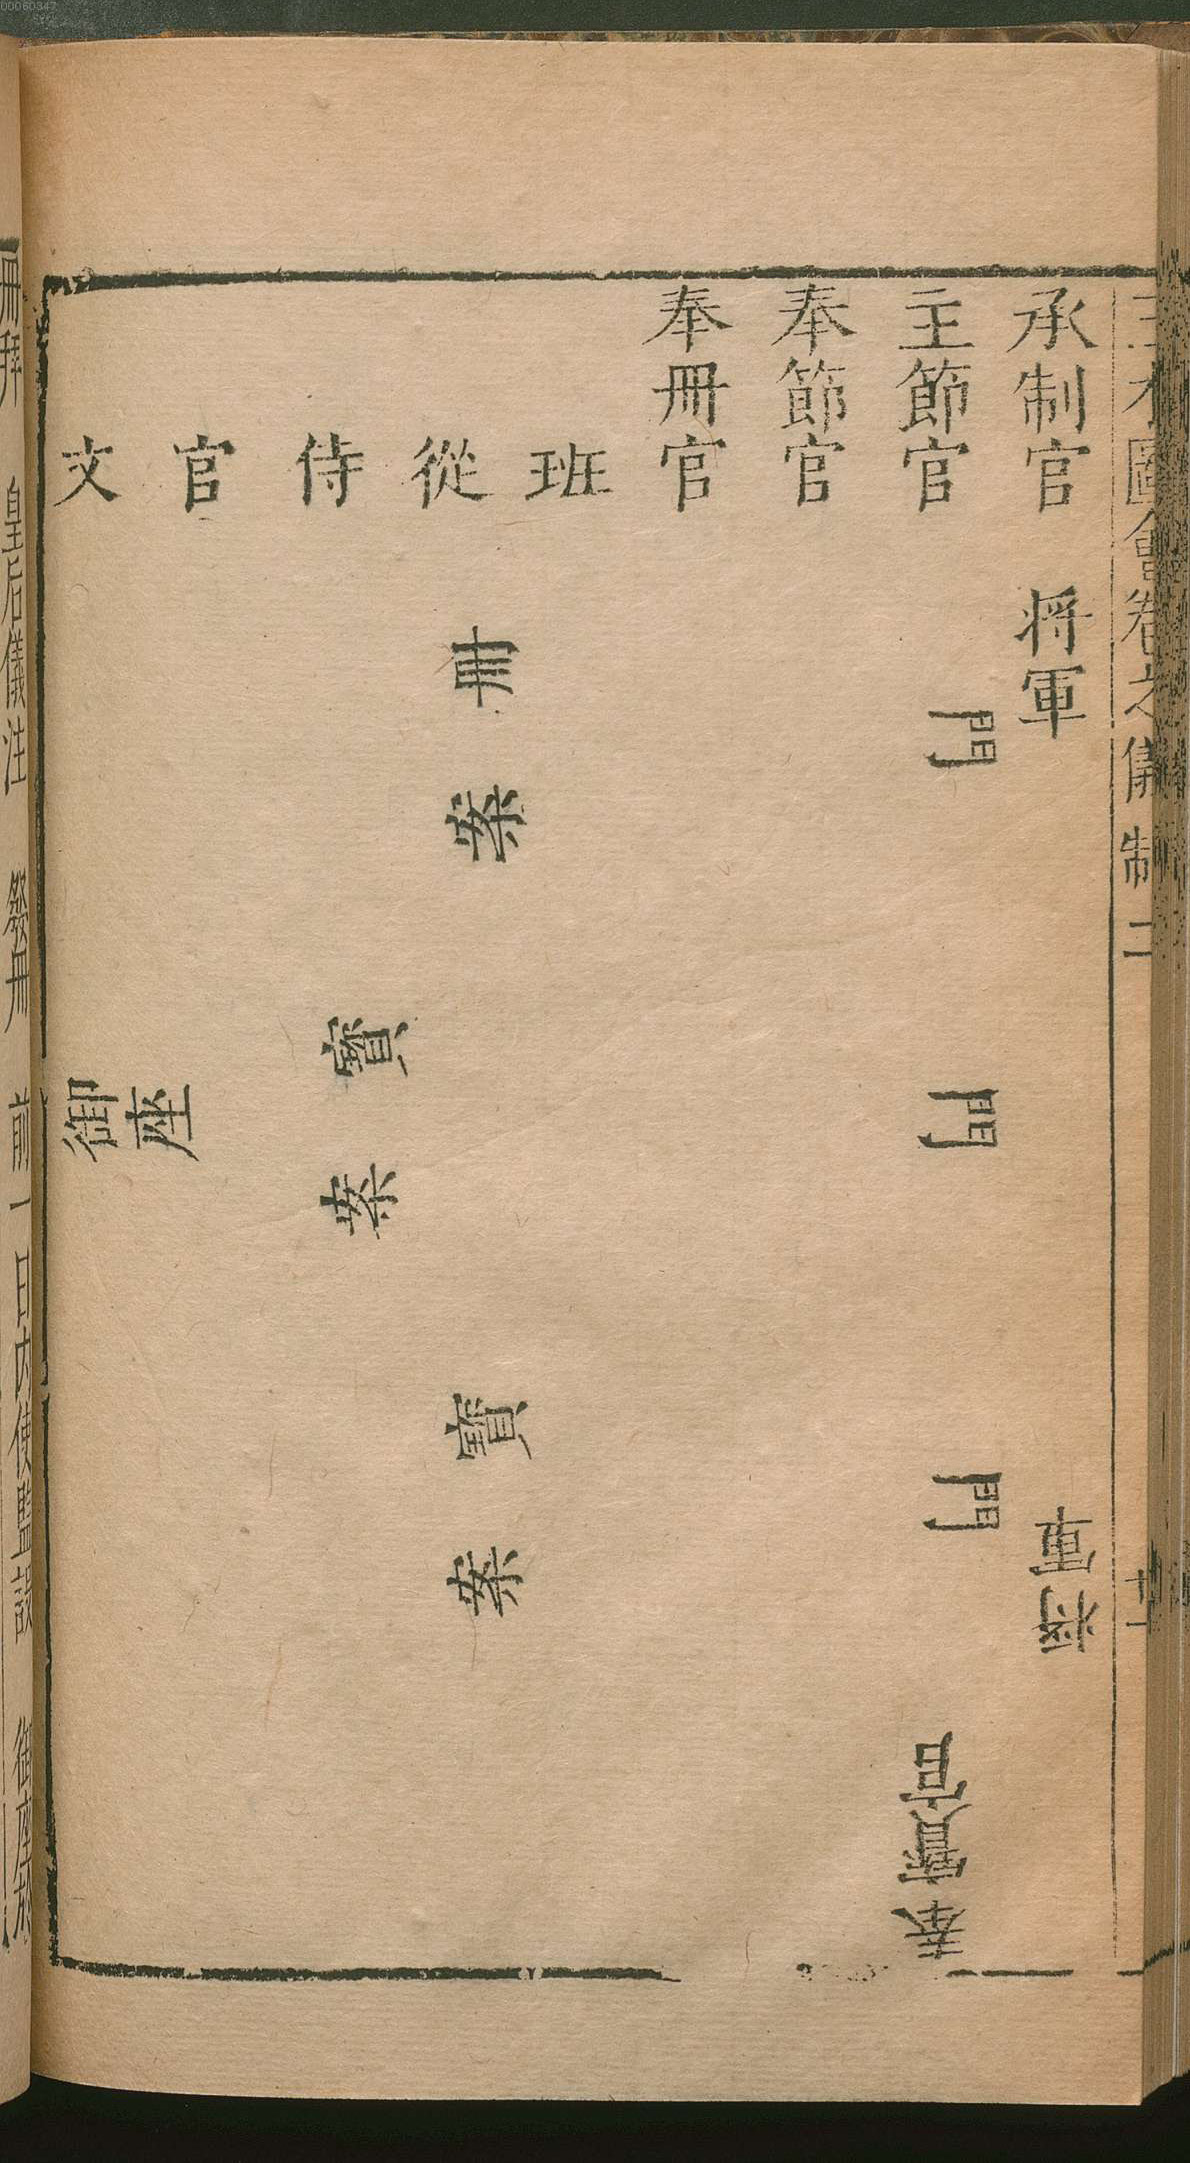 00060347
三才圖會卷之儀制二
承制官
將軍
將軍
主節官
門
門
門
奉寶官
奉節官
奉冊官
文官侍從班
冊案
寶案
寶案
御座
冊拜 皇后儀注 發冊 前一日內使監設 御座於